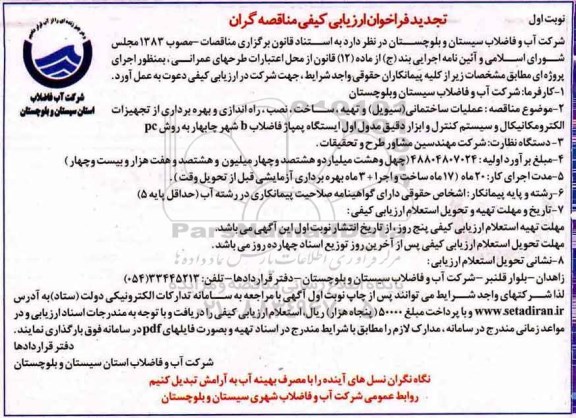 نوبت اول
تجدید فراخوان ارزیابی کیفی مناقصه گران
شرکت آب و فاضلاب سیستان و بلوچستان در نظر دارد به استناد قانون برگزاری مناقصات – مصوب ۱۳۸۳ مجلس
شورای اسلامی و آئین نامه اجرایی بند (ج) از ماده (۱۲) قانون از محل اعتبارات طرحهای عمرانی، بمنظور اجرای
پروژه ای مطابق مشخصات زیر از کلیه پیمانکاران حقوقی واجد شرایط، جهت شرکت در ارزیابی کیفی دعوت به عمل آورد.
۱-کارفرما: شرکت آب و فاضلاب سیستان و بلوچستان
۲-موضوع مناقصه: عملیات ساختمانی (سیویل) و تهیه، ساخت، نصب، راه اندازی و بهره برداری از تجهیزات
الکترومکانیکال و سیستم کنترل و ابزار دقیق مدول اول ایستگاه پمپاژ فاضلاب b شهر چابهار به روش pc
۳-دستگاه نظارت: شرکت مهندسین مشاور طرح و تحقیقات.
۴-مبلغ برآورد اولیه: ۴۸۸۰۴۸۰۷۰۲۴ (چهل وهشت میلیارد و هشتصد و چهار میلیون و هشتصد و هفت هزار و بیست و چهار)
۵-مدت اجرای کار: ۲۰ ماه (۱۷ ماه ساخت و اجرا + ۳ ماه بهره برداری آزمایشی قبل از تحویل وقت).
۶-رشته و پایه پیمانکار: اشخاص حقوقی دارای گواهینامه صلاحیت پیمانکاری در رشته آب (حداقل پایه ۵)
۷-تاریخ و مهلت تهیه و تحویل استعلام ارزیابی کیفی:
مهلت تهیه استعلام ارزیابی کیفی پنج روز، از تاریخ انتشار نوبت اول این آگهی می باشد.
مهلت تحویل استعلام ارزیابی کیفی پس از آخرین روز توزیع اسناد چهارده روز می باشد.
۸-نشانی تحویل استعلام ارزیابی:
زاهدان – بلوار قلنبر – شرکت آب و فاضلاب سیستان و بلوچستان – دفتر قراردادها – تلفن: ۳۳۴۴۵۲۱۳ (۰۵۴)
لذا شرکتهای واجد شرایط می توانند پس از چاپ نوبت اول آگهی با مراجعه به سامانه تدارکات الکترونیکی دولت (ستاد) به آدرس
www.setadiran.ir و با پرداخت مبلغ ۵۰۰۰۰ (پنجاه هزار) ریال استعلام ارزیابی کیفی را دریافت و با توجه به مندرجات اسناد ارزیابی و در
مواعد زمانی مندرج در سامانه، مدارک لازم را مطابق با شرایط مندرج در اسناد تهیه و بصورت فایلهای pdf در سامانه فوق بارگذاری نمایند.
دفتر قراردادها
شرکت آب و فاضلاب استان سیستان و بلوچستان
نگاه نگران نسل های آینده را با مصرف بهینه آب به آرامش تبدیل کنیم
روابط عمومی شرکت آب و فاضلاب شهری سیستان و بلوچستان
شرکت آب فاضلاب
استان سیستان و بلوچستان